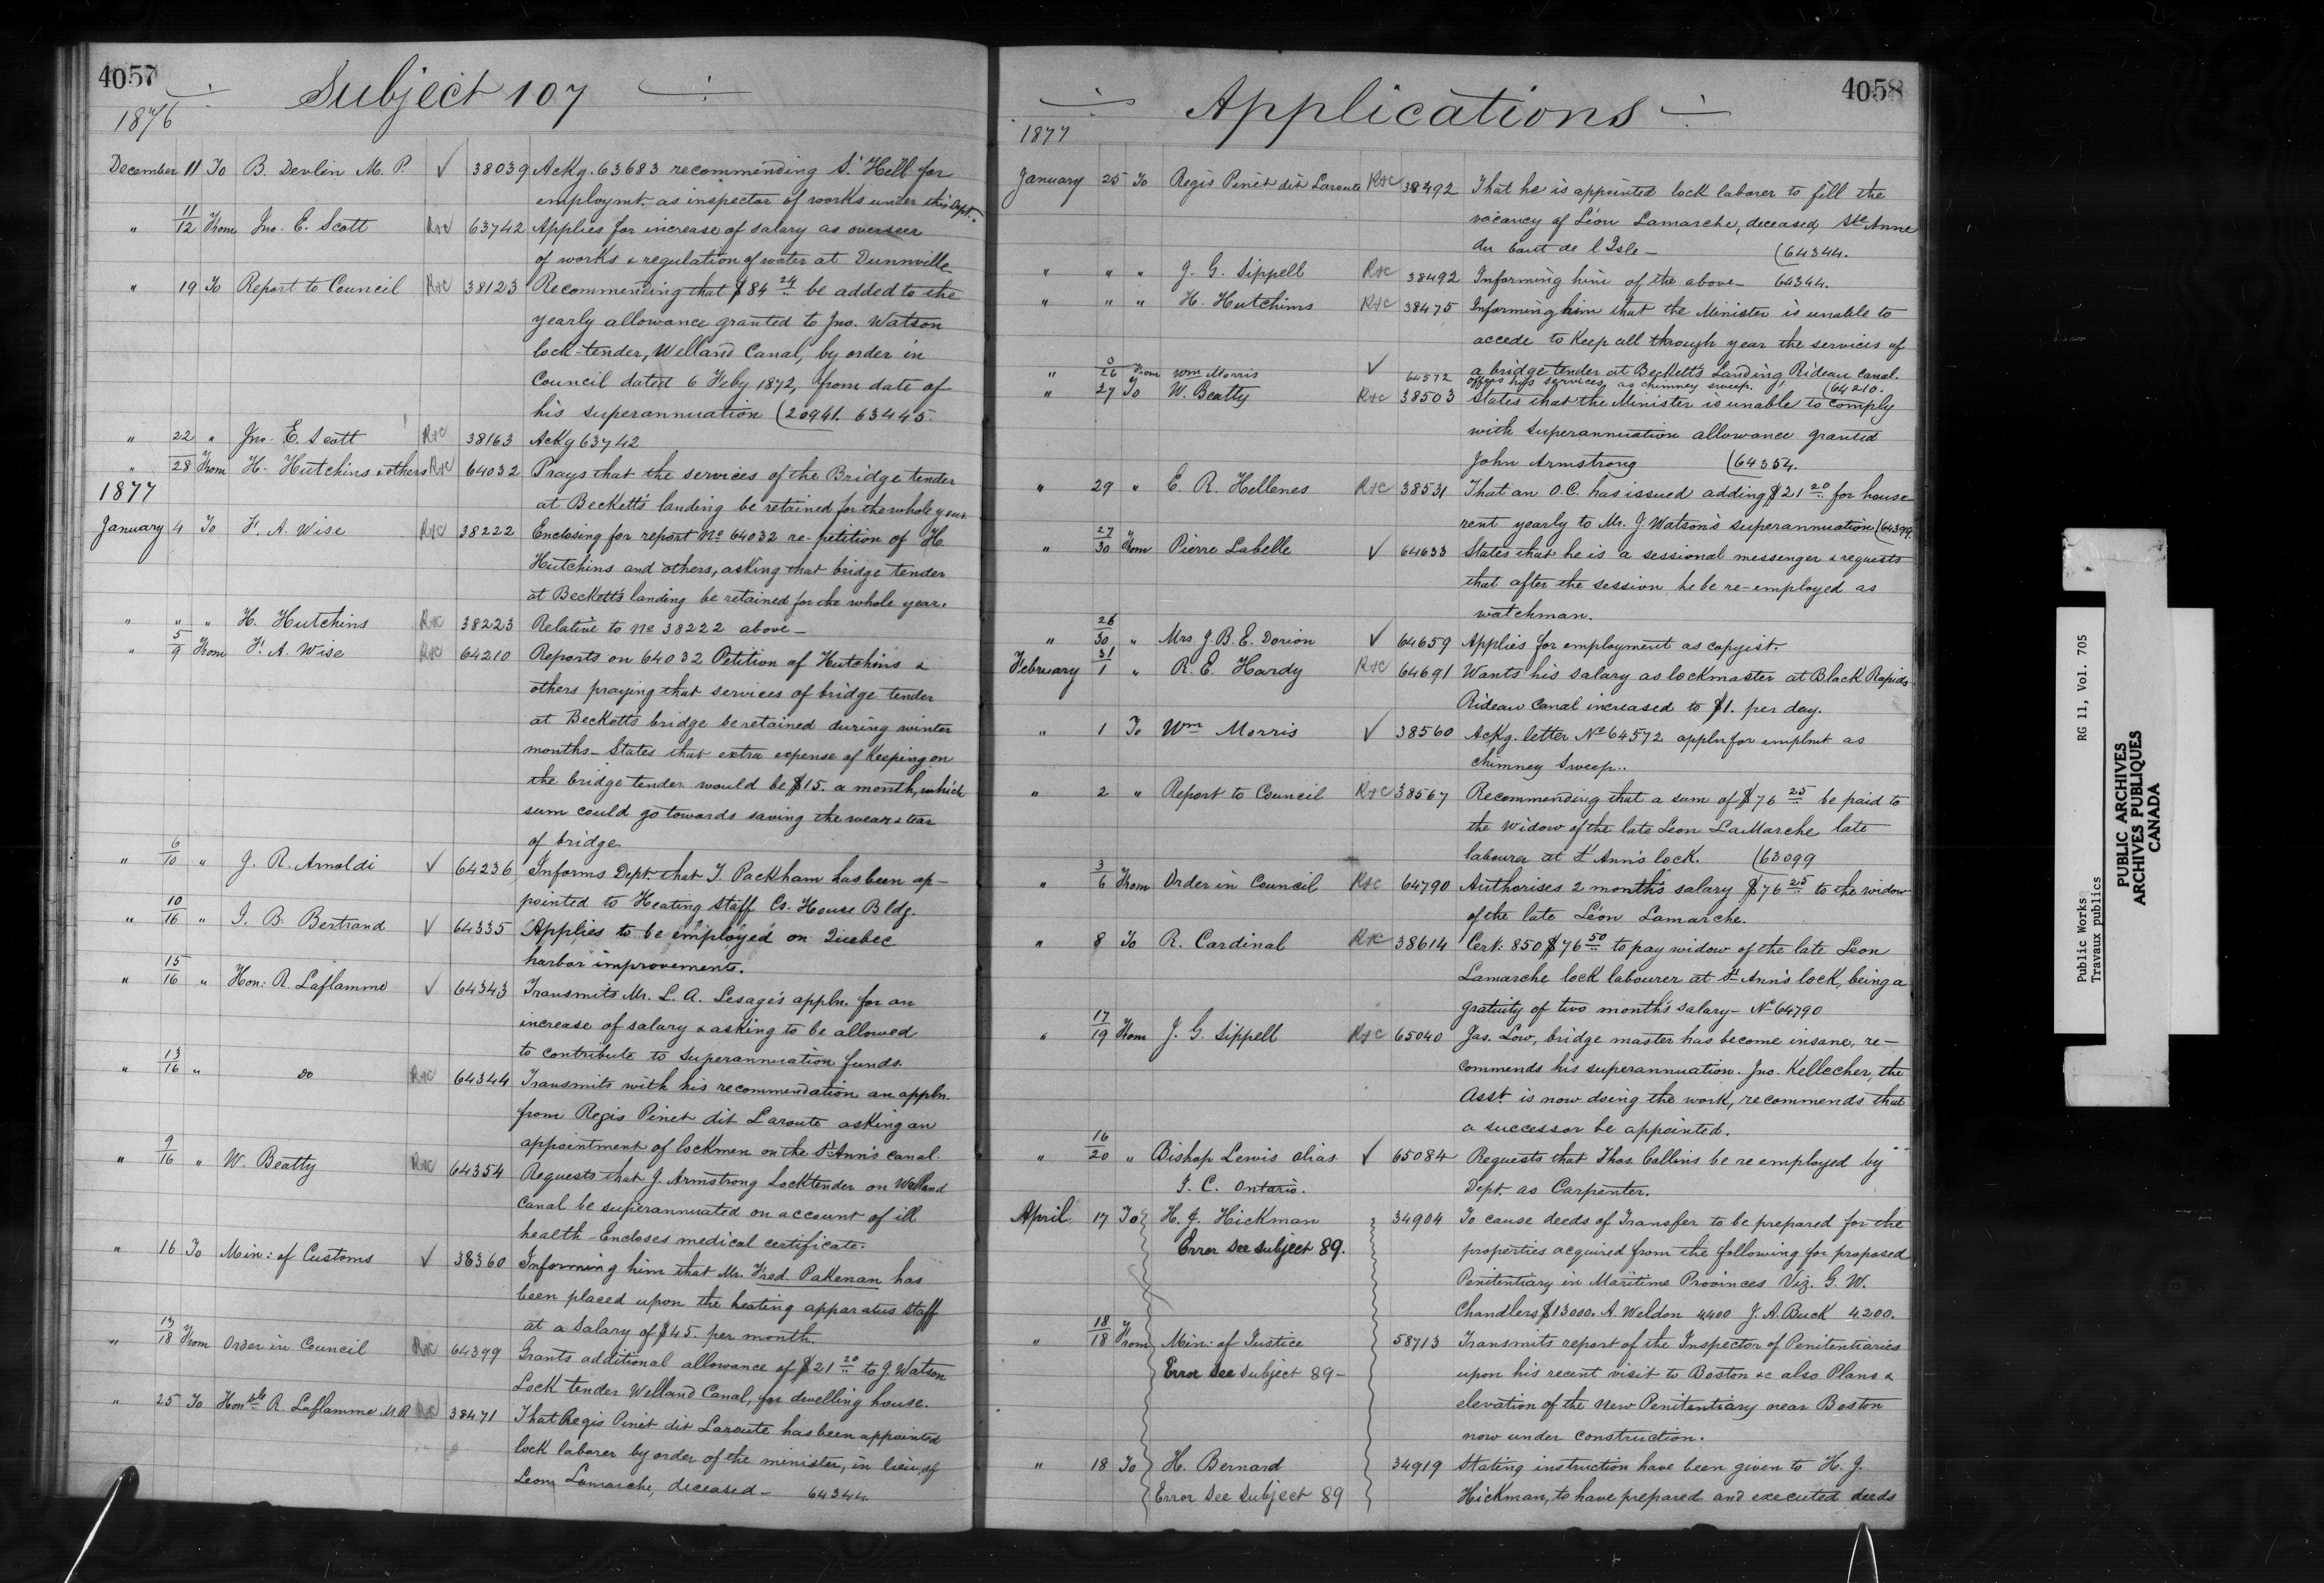 4057
Subject 107
1876
December 11 To B. Devlin M. P. ✓ 38039 Ackg. 63683 recommending S. Hell for
employmt. as inspector of works under this Dept.
" 11/12 From Jno. E. Scott R&C 63742 Applies for increase of salary as overseer
of works & regulation of water at Dunnville
" 19 To Report to Council R&C 38123 Recommending that $84 24 be added to the
yearly allowance granted to Jno. Watson
lock-tender, Welland Canal, by order in
Council dated 6 Feby 1872, from date of
his superannuation (20941. 63445.
" 22 " Jno. E. Scott R&C 38163 Ackg 63742
" 28 From H. Hutchins & others R&C 64032 Prays that the services of the Bridge tender
at Beckett's landing be retained for the whole year.
1877
January 4 To F. A. Wise R&C 38222 Enclosing for report No 64032 re-petition of H.
Hutchins and others, asking that bridge tender
at Beckett's landing be retained for the whole year.
" " " H. Hutchins R&C 38223 Relative to No 38222 above—
" 5/9 From F. A. Wise R&C 64210 Reports on 64032 Petition of Hutchins &
others praying that services of bridge tender
at Becketts bridge be retained during winter
months— States that extra expense of keeping on
the bridge tender would be $15. a month, which
sum could go towards saving the wear & tear
of bridge
" 6/10 " J. R. Arnoldi ✓ 64236 Informs Dept. that J. Packham has been ap-
pointed to Heating Staff Cs. House Bldg.
" 10/16 " J. B. Bertrand ✓ 64335 Applies to be employed on Quebec
harbor improvements.
" 15/16 " Hon: R. Laflamme ✓ 64343 Transmits Mr. L. A. Lesage's appln. for an
increase of salary & asking to be allowed
to contribute to superannuation funds.
" 13/16 " Do R&C 64344 Transmits with his recommendation an appln.
from Regis Pinet dit Laroute asking an
appointment of lockmen on the St Ann's canal.
" 9/16 " W. Beatty R&C 64354 Requests that J. Armstrong Locktender on Welland
Canal be superannuated on account of ill
health— Encloses medical certificate.
" 16 To Min: of Customs ✓ 38360 Informing him that Mr. Fred. Pakenan has
been placed upon the heating apparatus staff
at a salary of $45. per month.
" 13/18 From Order in Council R&C 64399 Grants additional allowance of $21 20 to J. Watson
Lock tender Welland Canal, for dwelling house.
" 25 To Honble R. Laflamme M.P. R&C 38471 That Regis Pinet dit Laroute has been appointed
lock laborer by order of the minister, in lieu of
Leon Lamarche, deceased— 64344
4058
Applications
1877
January 25 To Regis Pinet dit Laroute R&C 38492 That he is appointed lock laborer to fill the
vacancy of Léon Lamarche, deceased, Ste Anne
du bout de l'Isle— (64344.
" " " J. G. Sippell R&C 38492 Informing him of the above— 64344.
" " " H. Hutchins R&C 38475 Informing him that the Minister is unable to
accede to keep all through year the services of
a bridge tender at Beckett's Landing Rideau Canal.
(64210.
" 26 From Wm Morris ✓ 64572 offers his services as chimney sweep.
" 27 To W. Beatty R&C 38503 States that the Minister is unable to comply
with superannuation allowance granted
John Armstrong (64354.
" 29 " E. R. Hellenes R&C 38531 That an O.C. has issued adding $21 20 for house
rent yearly to Mr. J. Watson's superannuation (64399.
" 27/30 From Pierre Labelle ✓ 64633 States that he is a sessional messenger & requests
that after the session he be re-employed as
watchman.
" 26/30 " Mrs J. B. E. Dorion ✓ 64659 Applies for employment as copyist.
February 31/1 " R. E. Hardy R&C 64691 Wants his salary as lockmaster at Black Rapids
Rideau Canal increased to $1. per day.
" 1 To Wm Morris ✓ 38560 Ackg. letter No 64572 appln for emplmt as
chimney sweep..
" 2 " Report to Council R&C 38567 Recommending that a sum of $76 25 be paid to
the widow of the late Leon LaMarche late
labourer at St Ann's lock. (63099
" 3/6 From Order in Council R&C 64790 Authorises 2 month's salary $76 25 to the widow
of the late Léon Lamarche.
" 8 To R. Cardinal R&C 38614 Cert: 850 $76 50 to pay widow of the late Leon
Lamarche lock labourer at St Ann's lock, being a
gratuity of two month's salary— No 64790
" 17/19 From J. G. Sippell R&C 65040 Jas. Low, bridge master has become insane, re-
commends his superannuation. Jno. Kellecher, the
Asst. is now doing the work, recommends that
a successor be appointed.
" 16/20 " Bishop Lewis alias ✓ 65084 Requests that Thos. Collins be re employed by
J. C. Ontario. Dept. as Carpenter.
April 17 To H. J. Hickman 34904 To cause deeds of Transfer to be prepared for the
Error see subject 89. properties acquired from the following for proposed
Penitentiary in Maritime Provinces Viz. G. W.
Chandlers $13000. A. Weldon 4400 J. A. Buck 4200.
" 18/18 From Min: of Justice 58713 Transmits report of the Inspector of Penitentiaries
Error see subject 89— upon his recent visit to Boston &c also Plans &
elevation of the New Penitentiary near Boston
now under construction.
" 18 To H. Bernard 34919 Stating instruction have been given to H. J.
Error see subject 89 Hickman, to have prepared and executed deeds
Public Works RG 11, Vol. 705
Travaux publics
PUBLIC ARCHIVES
ARCHIVES PUBLIQUES
CANADA